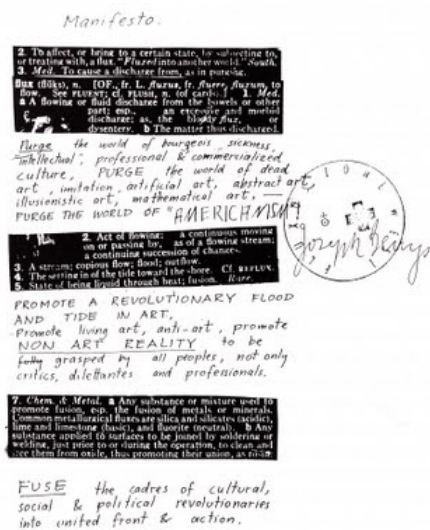 Manifesto.
2. To affect, or bring to a certain state, by subjecting to,
or treating with, a flux. "Fluxed into another world." South.
3. Med. To cause a discharge from, as in purging.
flux (flŭks), n. [OF., fr. L. fluxus, fr. fluere, fluxum, to
flow. See FLUENT; cf. FLUSH, n. (of cards).] 1. Med.
a A flowing or fluid discharge from the bowels or other
part; esp., an excessive and morbid
discharge; as, the bloody flux, or
dysentery. b The matter thus discharged.
Purge the world of bourgeois sickness,
"intellectual", professional & commercialized
culture, PURGE the world of dead
art, imitation, artificial art, abstract art,
illusionistic art, mathematical art, —
PURGE THE WORLD OF "AMERICHNISM"!
Joseph Beuys
2. Act of flowing: a continuous moving
on or passing by, as of a flowing stream;
a continuing succession of changes.
3. A stream; copious flow; flood; outflow.
4. The setting in of the tide toward the shore. Cf. REFLUX.
5. State of being liquid through heat; fusion. Rare.
PROMOTE A REVOLUTIONARY FLOOD
AND TIDE IN ART,
Promote living art, anti-art, promote
NON ART REALITY to be
fully grasped by all peoples, not only
critics, dilettantes and professionals.
7. Chem. & Metal. a Any substance or mixture used to
promote fusion, esp. the fusion of metals or minerals.
Common metallurgical fluxes are silica and silicates (acidic),
lime and limestone (basic), and fluorite (neutral). b Any
substance applied to surfaces to be joined by soldering or
welding, just prior to or during the operation, to clean and
free them from oxide, thus promoting their union, as rosin.
FUSE the cadres of cultural,
social & political revolutionaries
into united front & action.